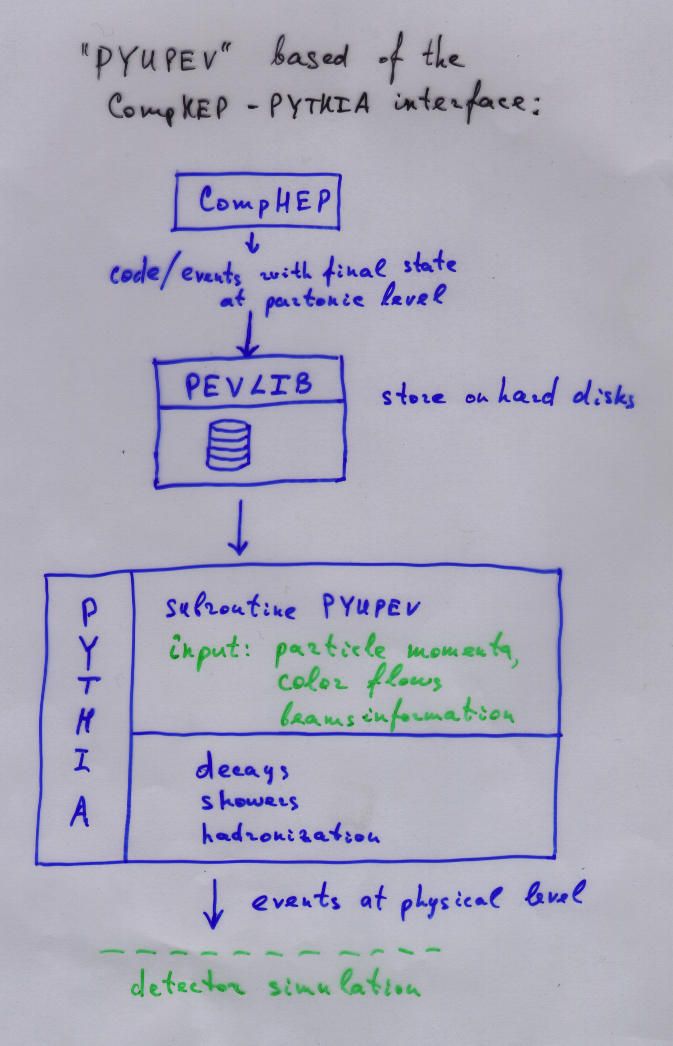 "PYUPEV" based of the
CompHEP - PYTHIA interface:
CompHEP
code/events with final state
at partonic level
PEVLIB
store on hard disks
PYTHIA
subroutine PYUPEV
input: particle momenta,
color flows
beams information
decays
showers
hadronization
events at physical level
detector simulation